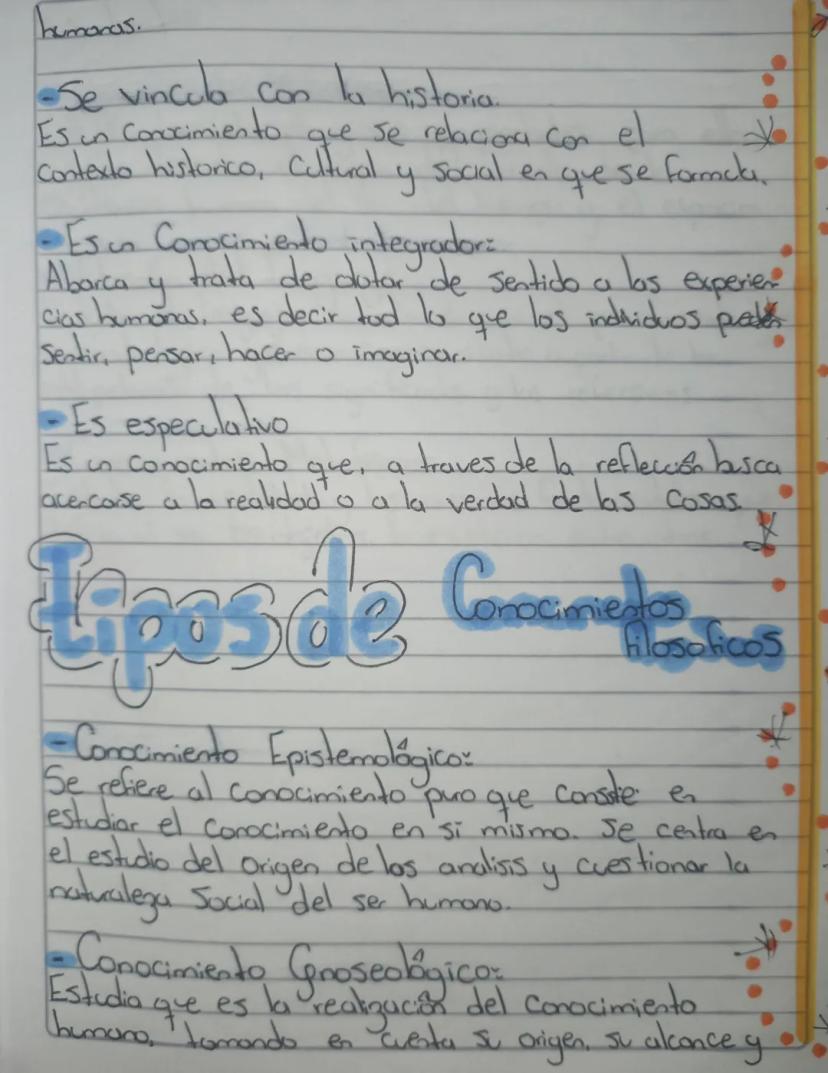 humanas.
-Se vincula con la historia.
Es un Conocimiento que se relaciona con el
contexto historico, Cultural y social en que se formula.
-Es un Conocimiento integrador:
Abarca y trata de dotar de sentido a las experien
cias humanas, es decir tod lo que los individuos
sentir, pensar, hacer o imaginar.
-Es especulativo
Es un conocimiento que, a traves de la reflección busca
acercarse a la realidad o a la verdad de las cosas.
Tipos de Conocimientos
filosoficos
-Conocimiento Epistemológico:
Se refiere al conocimiento puro que consiste en
estudiar el conocimiento en si mismo. Se centra en
el estudio del origen de los analisis y cuestionar la
naturaleza Social del ser humano.
-Conocimiento Gnoseológico:
Estudia que es la realización del conocimiento
humano, tomando en cuenta su origen, su alcance y